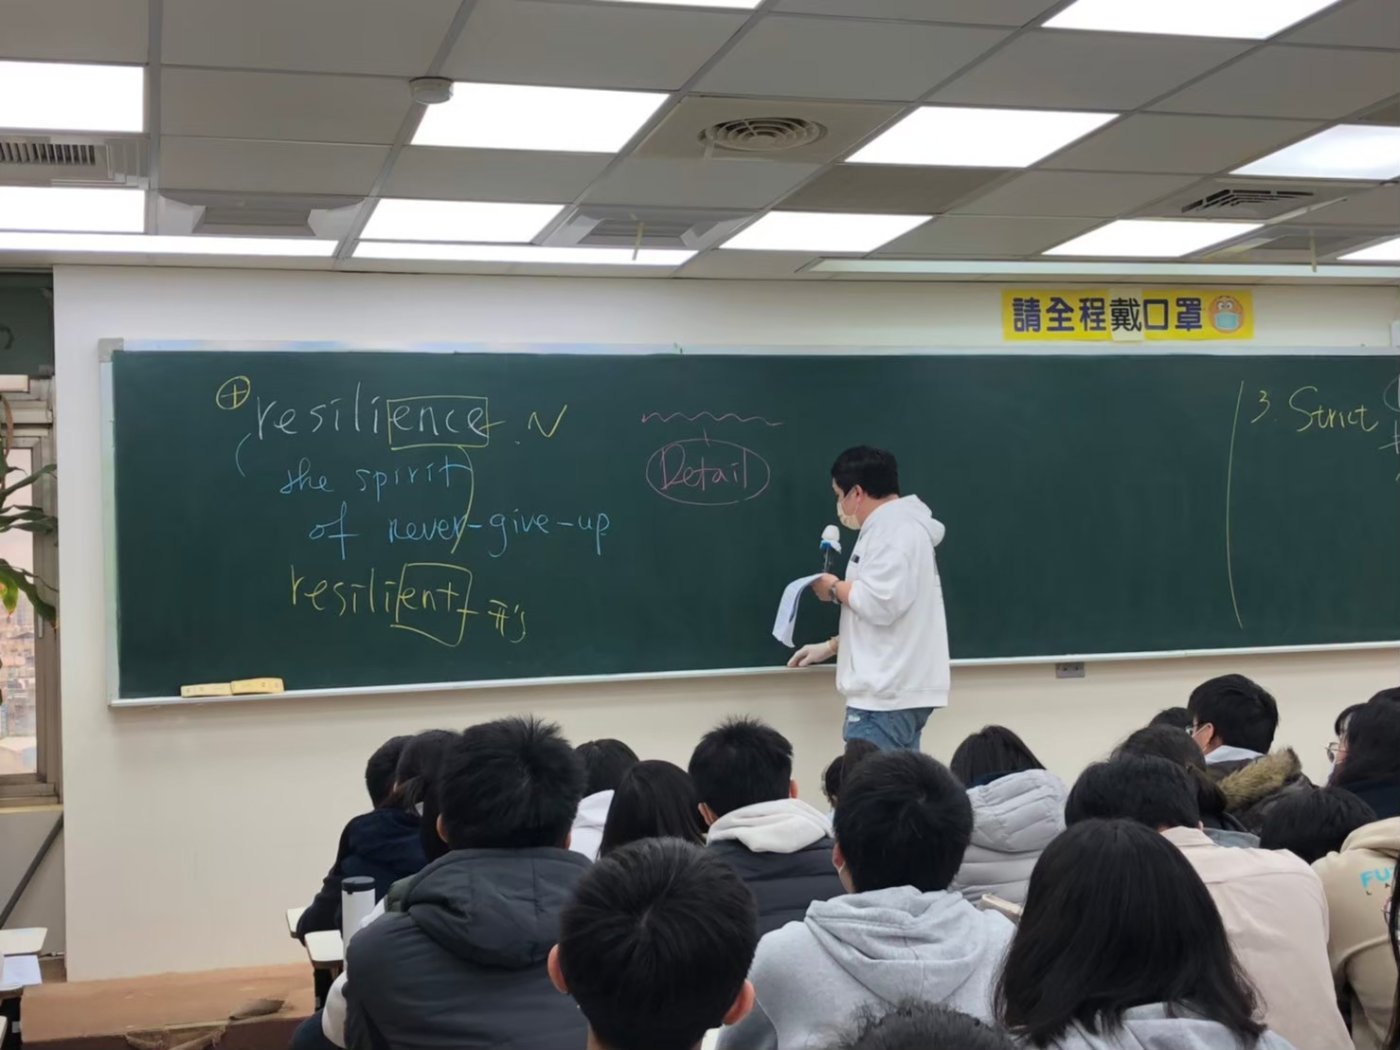 請全程戴口罩
⊕ resilience N
the spirit
of never-give-up
resilient
Detail
3. Strict